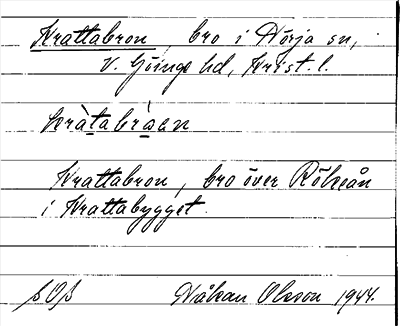 Krattabron, bro i Nörja sn,
V. Göinge hd, Krist. l.
kràtabràan
Krattabron, bro över Rökeån
i Krattabygget.
SOS Håkan Olsson 1944.